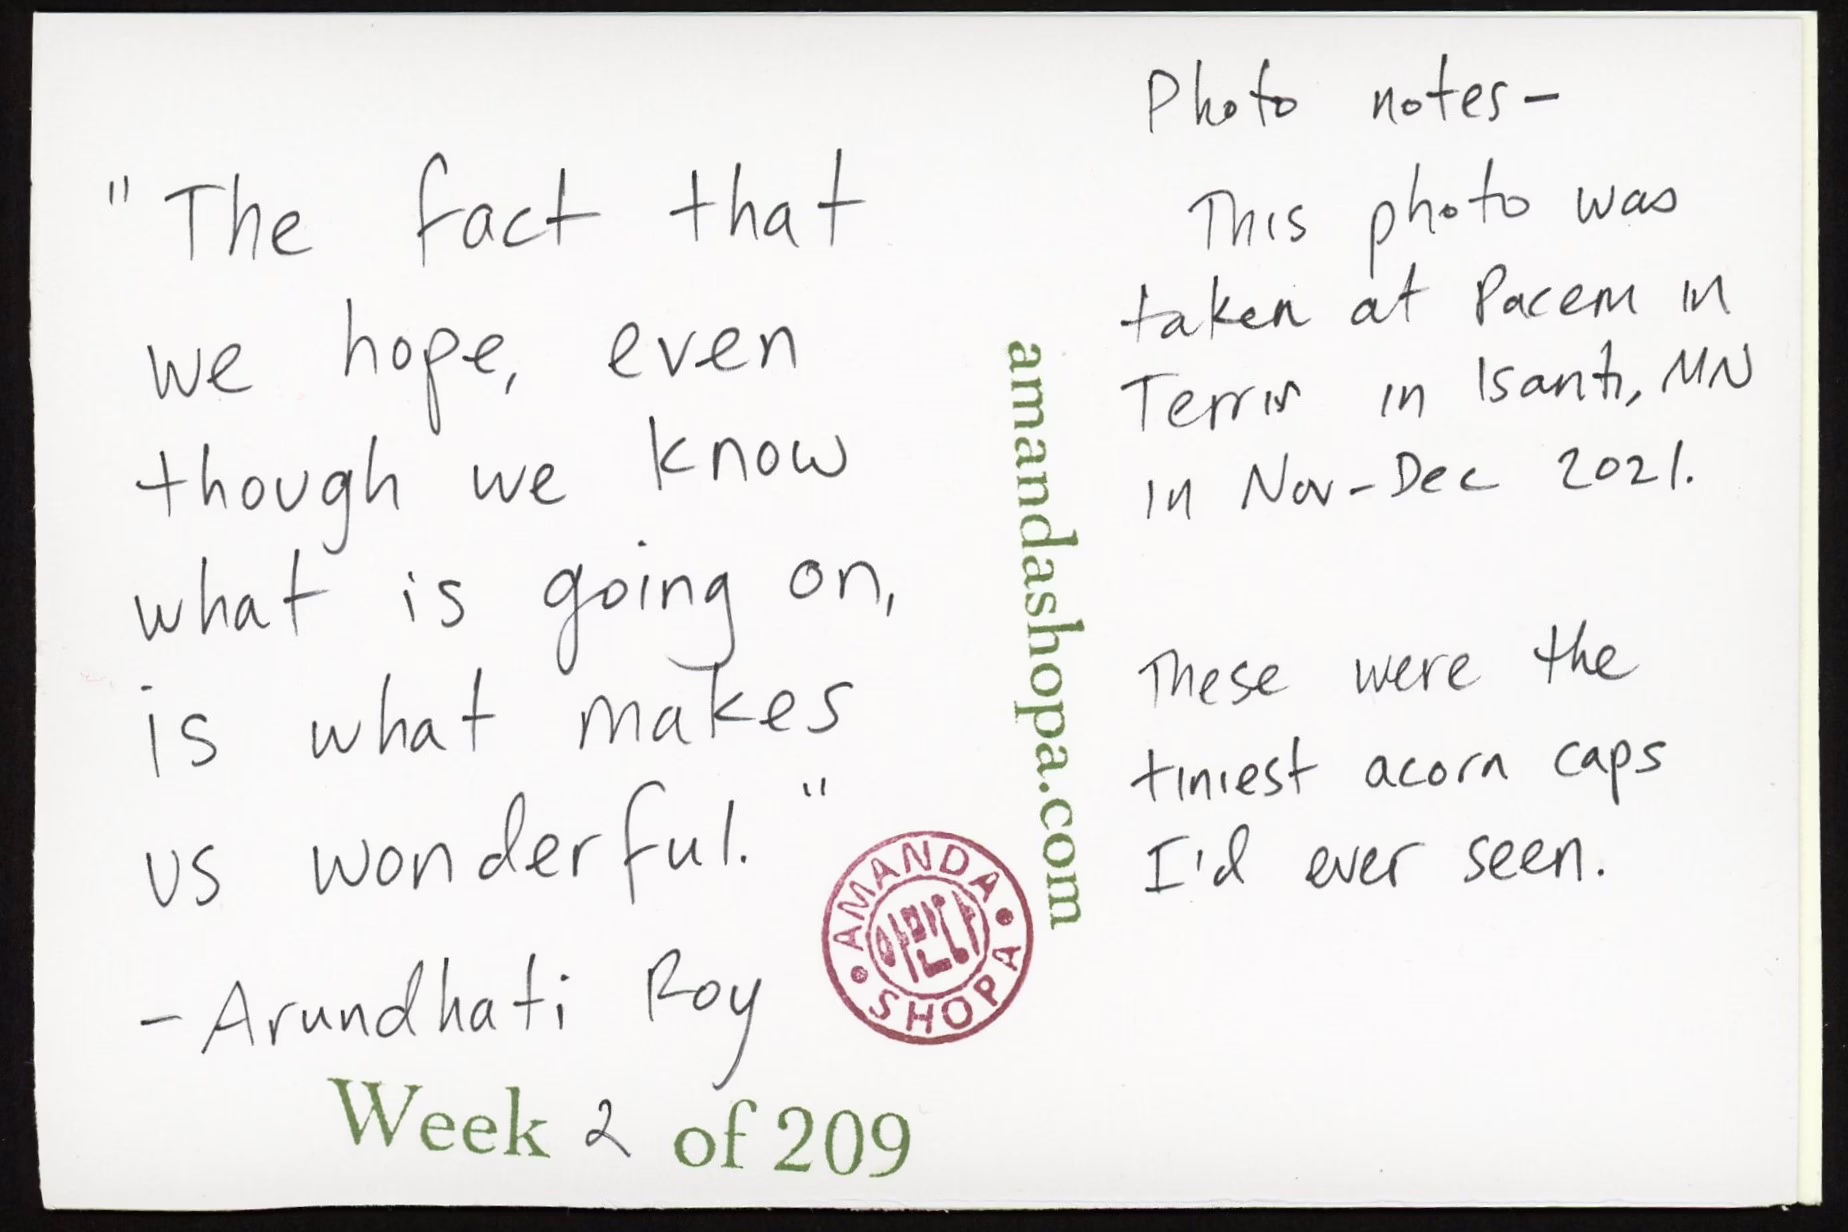 "The fact that
we hope, even
though we know
what is going on,
is what makes
us wonderful."
- Arundhati Roy
Week 2 of 209
AMANDA
SHOPA
amandashopa.com
Photo notes-
This photo was
taken at Pacem in
Terris in Isanti, MN
in Nov-Dec 2021.
These were the
tiniest acorn caps
I'd ever seen.